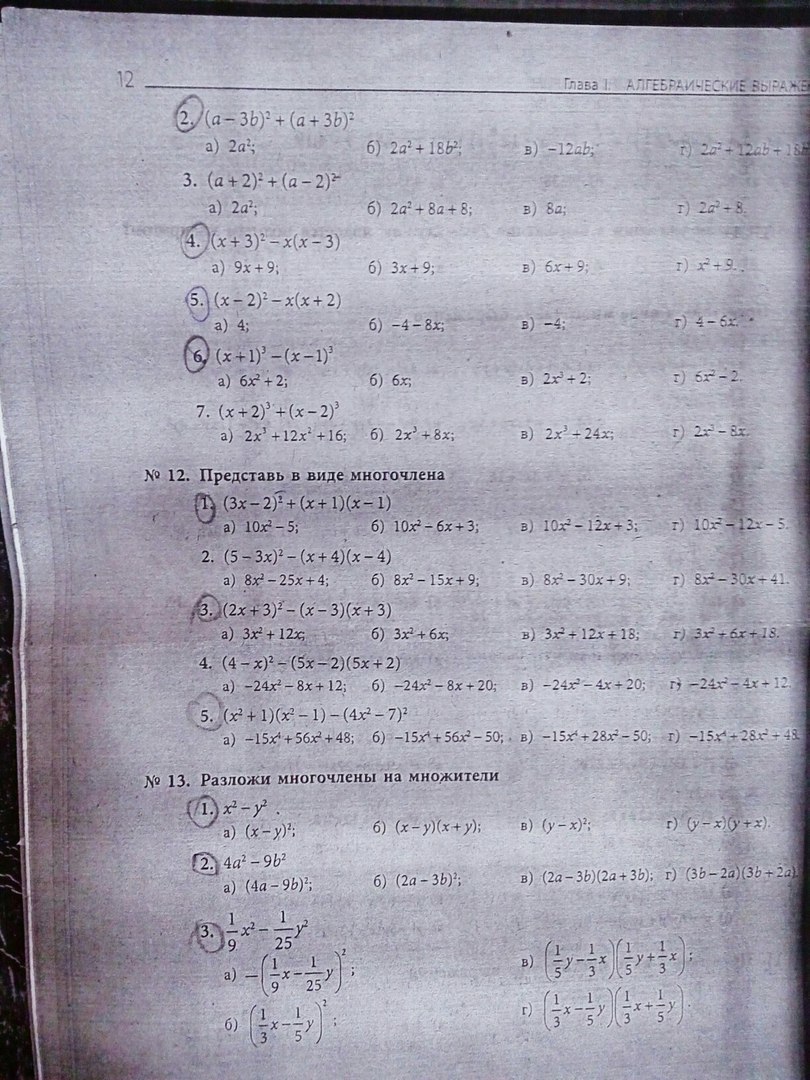 12 Глава I. АЛГЕБРАИЧЕСКИЕ ВЫРАЖЕ
2. (a – 3b)² + (a + 3b)²
а) 2a²; б) 2a² + 18b²; в) –12ab; г) 2a² + 12ab + 18b
3. (a + 2)² + (a – 2)²
а) 2a²; б) 2a² + 8a + 8; в) 8a; г) 2a² + 8.
4. (x + 3)² – x(x – 3)
а) 9x + 9; б) 3x + 9; в) 6x + 9; г) x² + 9.
5. (x – 2)² – x(x + 2)
а) 4; б) –4 – 8x; в) –4; г) 4 – 6x.
6. (x + 1)³ – (x – 1)³
а) 6x² + 2; б) 6x; в) 2x³ + 2; г) 6x² – 2.
7. (x + 2)³ + (x – 2)³
а) 2x³ + 12x² + 16; б) 2x³ + 8x; в) 2x³ + 24x; г) 2x³ – 8x.
№ 12. Представь в виде многочлена
1. (3x – 2)² + (x + 1)(x – 1)
а) 10x² – 5; б) 10x² – 6x + 3; в) 10x² – 12x + 3; г) 10x² – 12x – 5.
2. (5 – 3x)² – (x + 4)(x – 4)
а) 8x² – 25x + 4; б) 8x² – 15x + 9; в) 8x² – 30x + 9; г) 8x² – 30x + 41.
3. (2x + 3)² – (x – 3)(x + 3)
а) 3x² + 12x; б) 3x² + 6x; в) 3x² + 12x + 18; г) 3x² + 6x + 18.
4. (4 – x)² – (5x – 2)(5x + 2)
а) –24x² – 8x + 12; б) –24x² – 8x + 20; в) –24x² – 4x + 20; г) –24x² – 4x + 12.
5. (x² + 1)(x² – 1) – (4x² – 7)²
а) –15x⁴ + 56x² + 48; б) –15x⁴ + 56x² – 50; в) –15x⁴ + 28x² – 50; г) –15x⁴ + 28x² + 48.
№ 13. Разложи многочлены на множители
1. x² – y²
а) (x – y)²; б) (x – y)(x + y); в) (y – x)²; г) (y – x)(y + x).
2. 4a² – 9b²
а) (4a – 9b)²; б) (2a – 3b)²; в) (2a – 3b)(2a + 3b); г) (3b – 2a)(3b + 2a).
3. 1/9 x² – 1/25 y²
а) –(1/9 x – 1/25 y)²; в) (1/5 y – 1/3 x)(1/5 y + 1/3 x);
б) (1/3 x – 1/5 y)²; г) (1/3 x – 1/5 y)(1/3 x + 1/5 y).